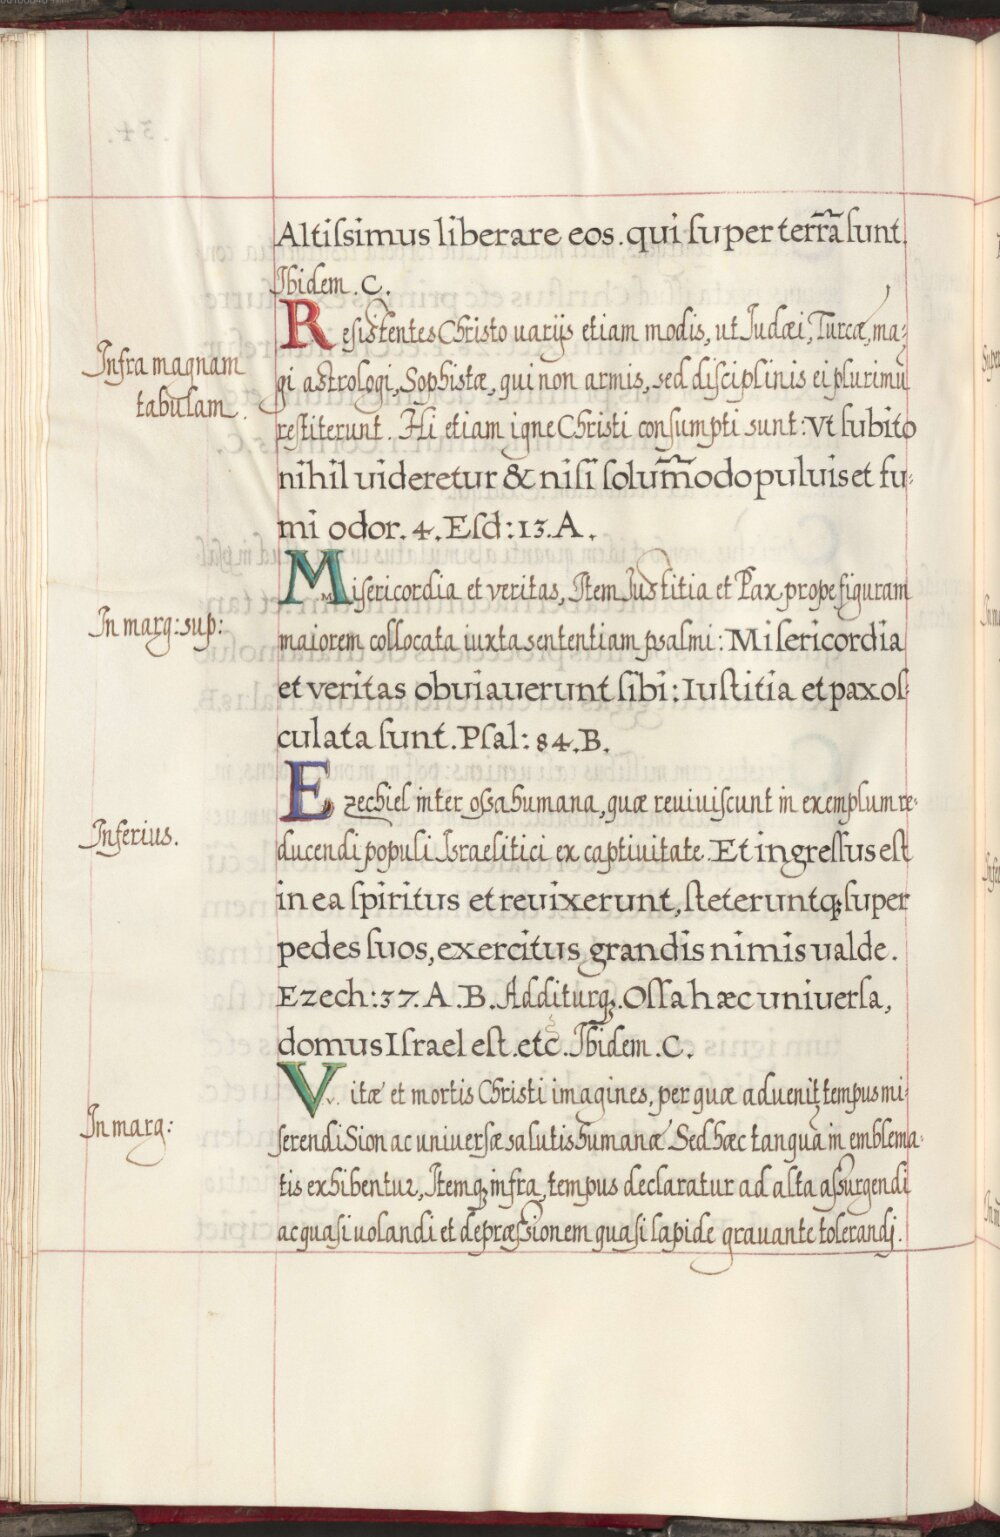 Altiſsimus liberare eos. qui ſuper terrã ſunt.
Ibidem. C.
Infra magnam
tabulam.
Reſiſtentes Christo uarijs etiam modis, ut Iudæi, Turcæ, ma:
gi aſtrologi, Sophistæ, qui non armis, sed diſciplinis ei plurimũ
reſtiterunt. Hi etiam igne Christi conſumpti sunt: Vt ſubito
nihil uideretur & niſi ſolum̃odo puluis et fu:
mi odor. 4. Eſd: 13. A.
In marg: sup:
Miſericordia et veritas, Item Iustitia et Pax prope figuram
maiorem collocata iuxta sententiam psalmi: Miſericordia
et veritas obuiauerunt ſibi: Iuſtitia et pax oſ:
culata ſunt. Pſal: 84. B.
Inferius.
Ezechiel inter oſsa humana, quæ reuiuiſcunt in exemplum re:
ducendi populi Israelitici ex captiuitate. Et ingreſſus eſt
in ea ſpiritus et reuixerunt, ſteteruntq; ſuper
pedes ſuos, exercitus grandis nimis ualde.
Ezech: 37. A. B. Additurq;. Oſſa hæc uniuerſa,
domus Iſrael eſt. etc. Ibidem. C.
In marg:
Vitæ et mortis Christi imagines, per quæ aduenit tempus mi:
serendi Sion ac uniuerſæ salutis humanæ. Sed hæc tanquã in emblema:
tis exhibentur, Itemq; infra, tempus declaratur ad alta aſsurgendi
ac quaſi uolandi et depræſsionem quaſi lapide grauante tolerandj.